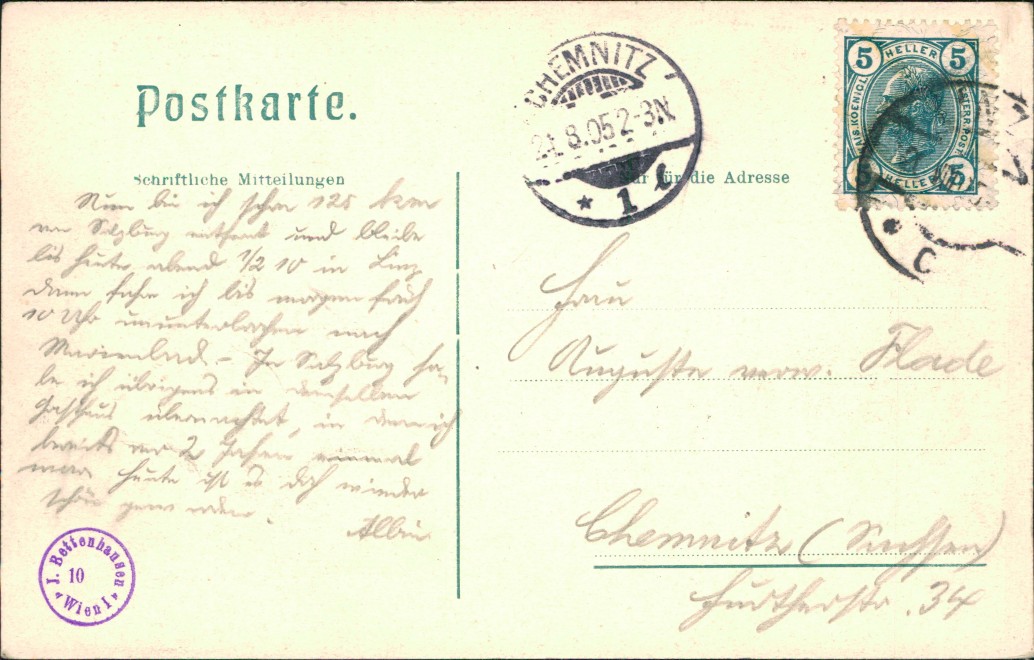 Postkarte.
Schriftliche Mitteilungen
Nur für die Adresse
CHEMNITZ
24.8.05 2-3N
* 1 t
5 HELLER 5
KAIS. KOENIGL. OESTERR. POST
5 HELLER 5
* C
Nun bin ich schon 125 km
von Salzburg entfernt und bleibe
bis heute abend 1/2 10 in Linz
dann fahre ich bis morgen früh
10 Uhr ununterbrochen nach
Marienbad. – In Salzburg ha-
be ich übrigens in demselben
Gasthaus übernachtet, in dem ich
bereits vor 2 Jahren einmal
war. Heute ist es doch wieder
schön geworden.
Albin
Frau
Auguste verw. Flade
Chemnitz (Sachsen)
Fürtherstr. 34
J. Bettenhausen
10
* Wien I *